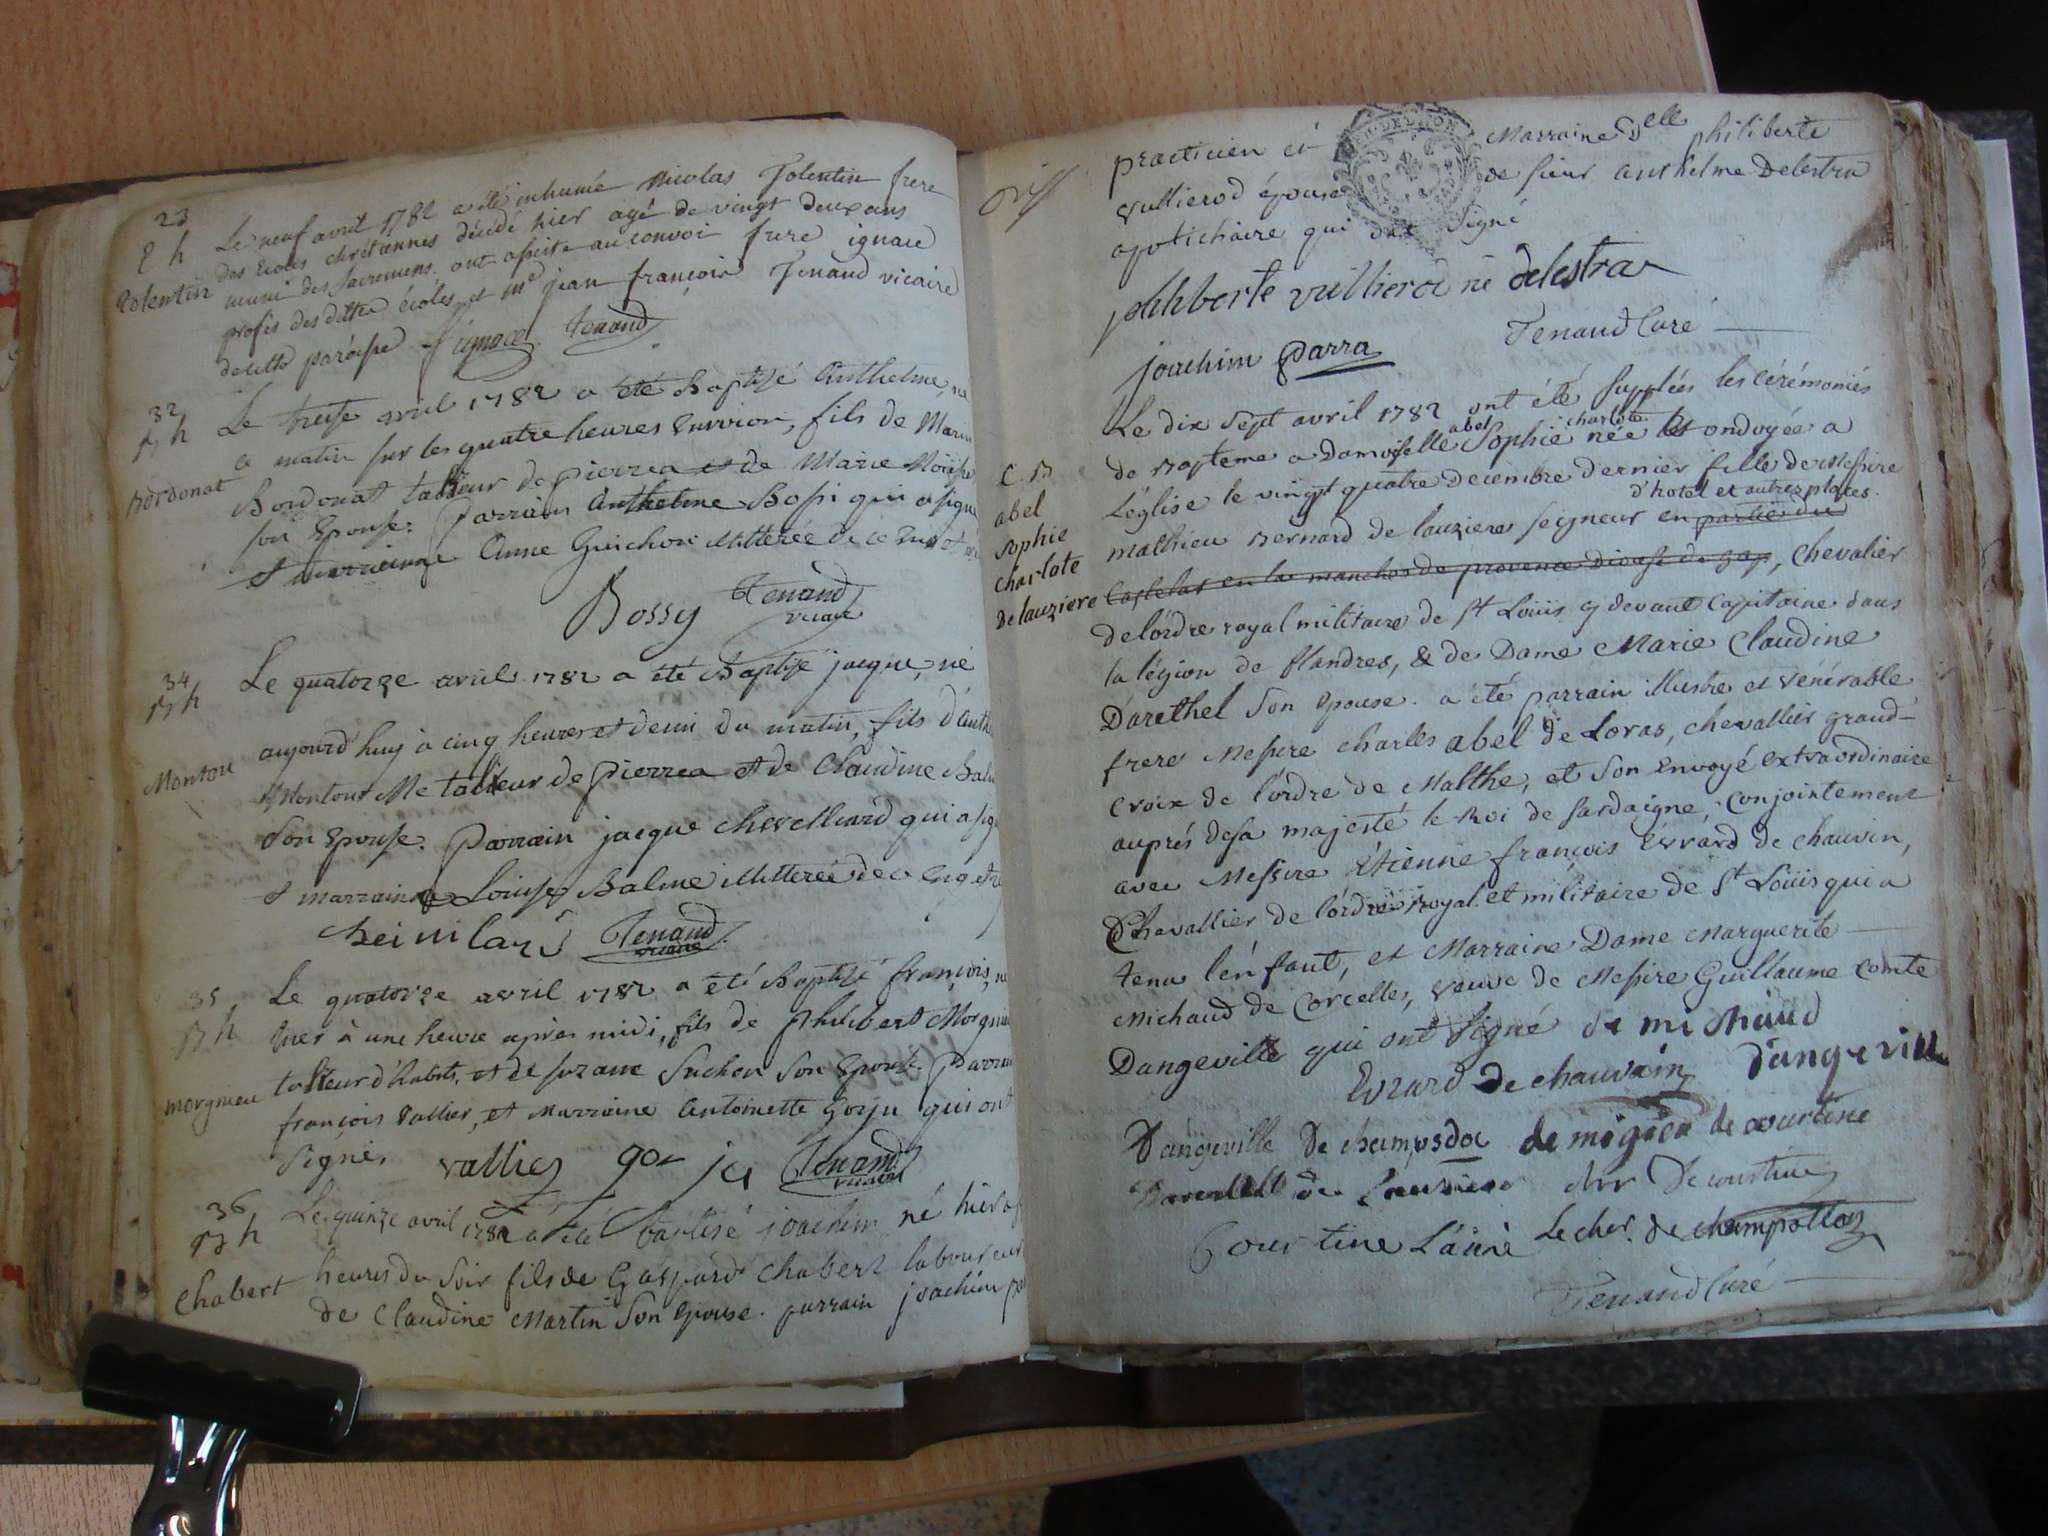 23
8 h
Tolentin
Le neuf avril 1782 a été inhumé Nicolas Tolentin frere
des Ecoles chrétiennes décédé hier agé de vingt deux ans
muni des Sacremens. ont assisté au convoi frere ignace
profès des dittes écoles et mre jean françois Tenand vicaire
de cette paroisse f ignace Tenand
32
h
Bordonat
Le treise avril 1782 a été Baptisé Anthelme, né
ce matin sur les quatre heures Environ, fils de Marin
Bordonat tailleur de pierrea et de Marie
son Epouse. Parrain Anthelme Bossi qui a signé
et marrienne Anne Guichon illitterée de ce Enq et re
Bossy Tenand
vicaire
34
h
Montou
Le quatorze avril 1782 a été Baptisé jacque, né
aujourd'huy à cinq heures et demi du matin, fils d'anth
Montout Me tailleur de pierrea et de Claudine Balm
Son Epouse. Parrain jacque chevelluard qui a sign
et marraine Louise Balme illitterée de ce Enq et re
Tenand
vicaire
35
h
morgnieu
Le quatorze avril 1782 a été Baptisé françois, né
hier à une heure après midi, fils de Philibert Morgnieu
tailleur d'habits, et de suzane Suchon Son Epouse. Parrain
françois vallier, et Marraine Antoinette Gorju qui ont
Signé, vallier gorju Tenand
vicaire
36
h
Chabert
Le quinze avril 1782 a été batisé joachim né hier a
heures du soir fils de Gaspard Chabert laboureur
de Claudine Martin Son Epouse. parrain joachim par
practicien et Marraine Delle philiberte
vullierod épouse de sieur anthelme Delestra
apotichaire qui ont signé
philiberte vullierod né delestra
joachim Parra Tenand Curé
C. B
abel
Sophie
charlote
De lauziere
Le dix sept avril 1782 ont été supplées les cérémonies
abel charlote
de Bapteme a Damoiselle Sophie née et ondoyée a
L'église le vingt quatre decembre dernier fille de Messire
d'hotel et autres places.
mathieu Bernard de lauzieres seigneur en partie du
Castelas en la manche de provence Diocese de gap, chevalier
de l'ordre royal militaire de St Louis cy devant Capitaine dans
la légion de flandres, & de Dame Marie Claudine
Darethel Son Epouse. a été parrain illustre et vénérable
frere Messire charles abel de Loras, chevallier grand-
croix de l'ordre de Malthe, et Son Envoyé extraordinaire
auprés de sa majesté le Roi de Sardaigne, Conjointement
avec Messire Etienne françois Evrard de Chauvin,
Chevallier de l'ordre Royal et militaire de St Louis qui a
tenu l'enfant, et Marraine Dame Marguerite
Michaud de Corcelles, veuve de Messire Guillaume Comte
Dangeville qui ont Signé de michaud
Evrard de chauvain d'angeville
Dangeville De champsdor de migieu de courtine
de Lauziere chr De courtine
Courtine L'ainé Le cher. de champollon
Tenand Curé